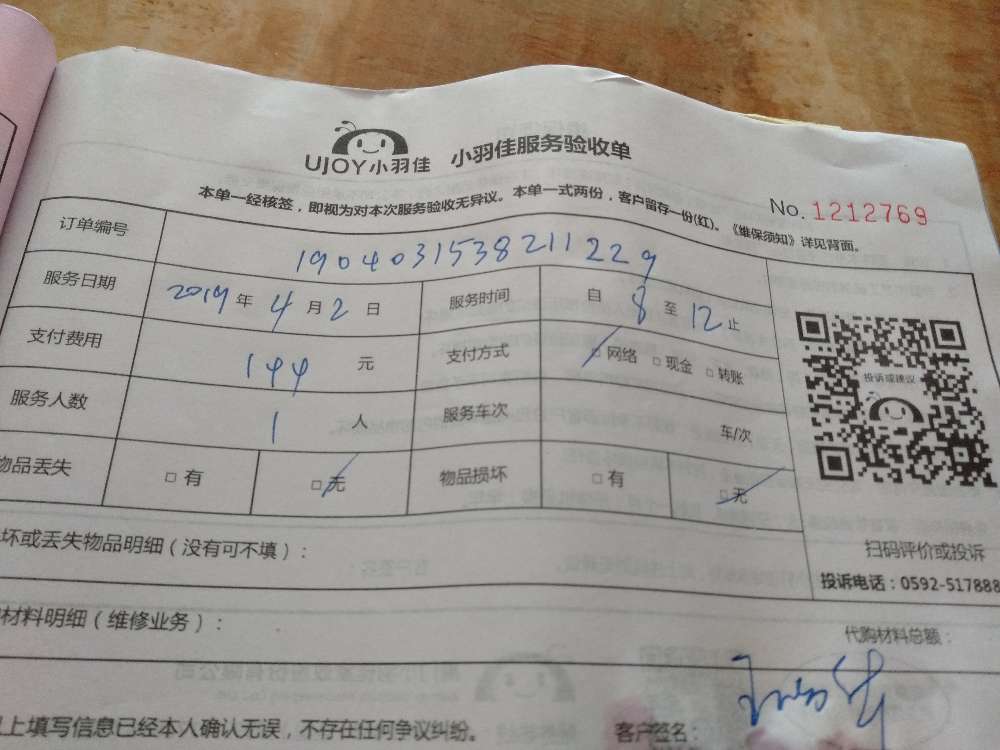 UJOY小羽佳 小羽佳服务验收单
No. 1212769
本单一经核签，即视为对本次服务验收无异议。本单一式两份，客户留存一份(红)。《维保须知》详见背面。
订单编号 1904031538211229
服务日期 2019年4月2日 服务时间 自8至12止
支付费用 144元 支付方式 □网络 □现金 □转账
服务人数 1人 服务车次 车/次
物品丢失 □有 □无 物品损坏 □有 □无
投诉或建议
扫码评价或投诉
投诉电话：0592-517888
坏或丢失物品明细（没有可不填）：
材料明细（维修业务）：
代购材料总额：
上填写信息已经本人确认无误，不存在任何争议纠纷。
客户签名：